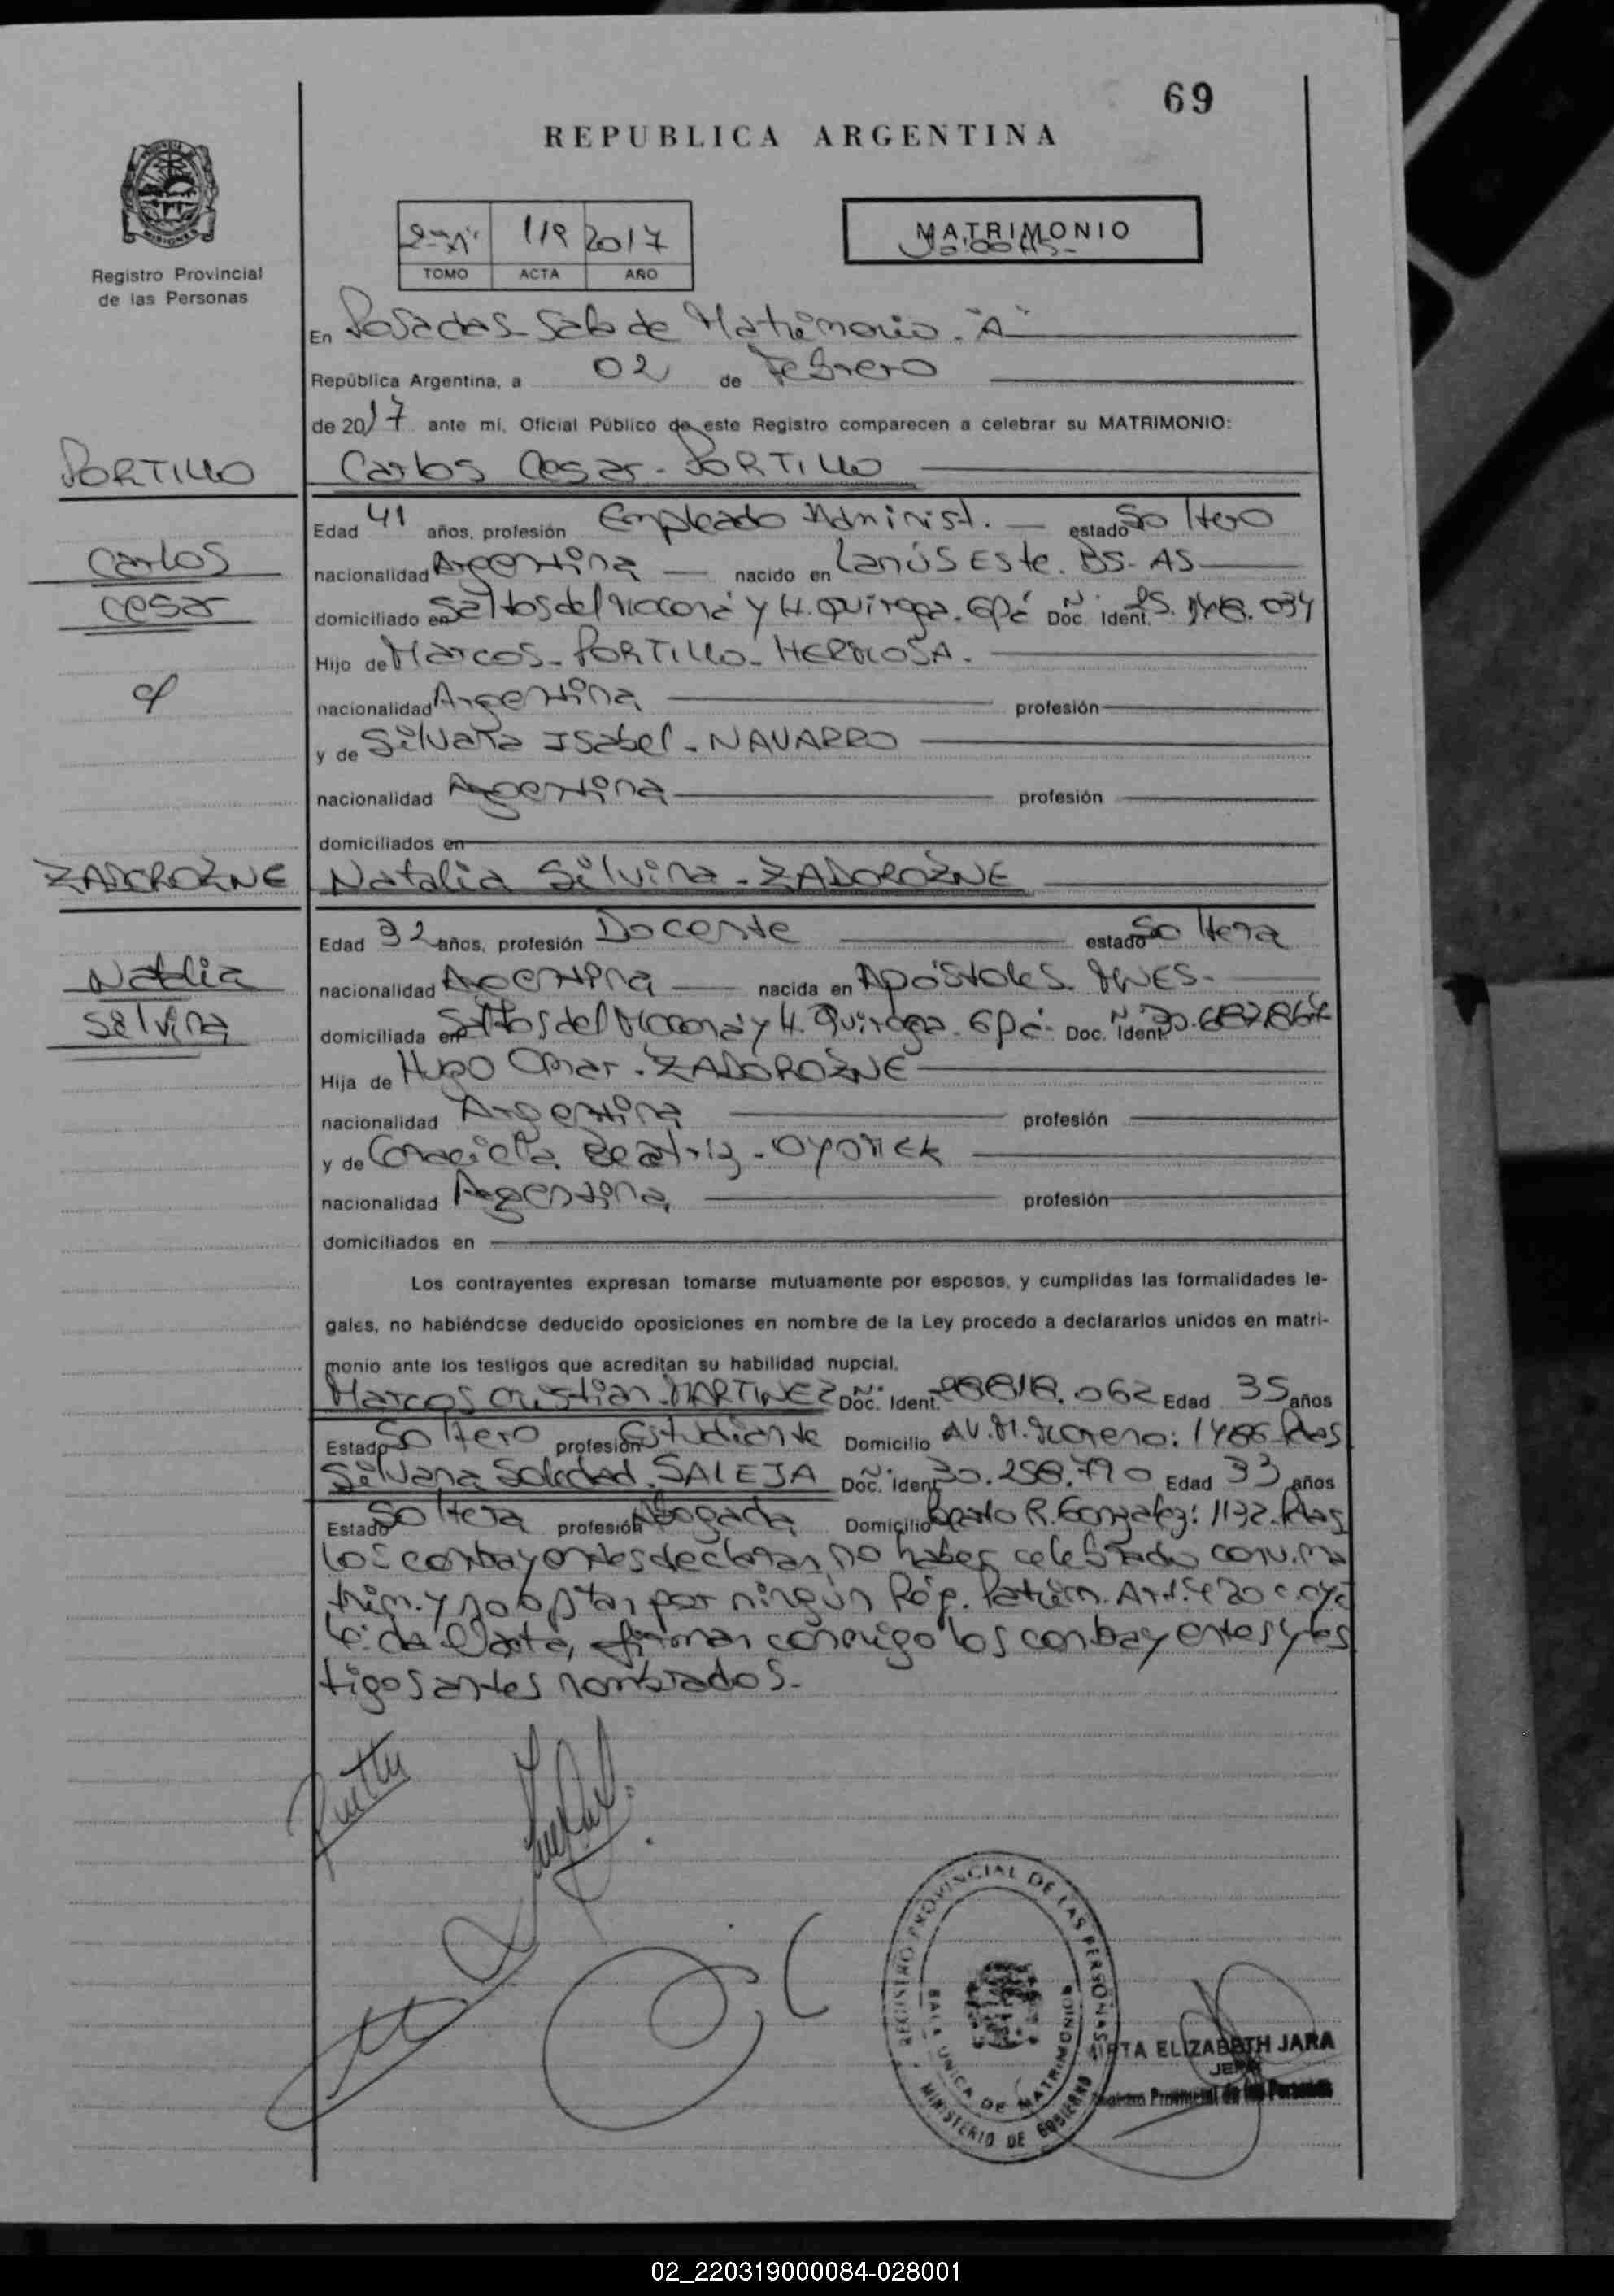 69
REPUBLICA ARGENTINA
Registro Provincial
de las Personas
119 2017
TOMO ACTA AÑO
MATRIMONIO
En Posadas Sala de Matrimonio. "A"
República Argentina, a 02 de Febrero
de 2017 ante mi, Oficial Público de este Registro comparecen a celebrar su MATRIMONIO:
PORTILLO
Carlos Cesar - PORTILLO
Edad 41 años, profesión Empleado Administ. estado Soltero
Carlos
nacionalidad Argentina nacido en Lanús Este. BS. AS
Cesar
domiciliado en Saltos del Moconá y H. Quiroga. Gpá Doc. Ident. N°
Hijo de Marcos - PORTILLO - HERMOSA.
nacionalidad Argentina profesión
y de Silvana Isabel - NAVARRO
nacionalidad Argentina profesión
domiciliados en
ZADOROZNE
Natalia Silvina - ZADOROZNE
Edad 32 años, profesión Docente estado Soltera
Natalia
nacionalidad Argentina nacida en Apóstoles. MNES.
Silvina
domiciliada en Saltos del Moconá y H. Quiroga. Gpá. Doc. Ident. N°
Hija de Hugo Omar - ZADOROZNE
nacionalidad Argentina profesión
y de Graciela Beatriz -
nacionalidad Argentina profesión
domiciliados en
Los contrayentes expresan tomarse mutuamente por esposos, y cumplidas las formalidades le-
gales, no habiéndose deducido oposiciones en nombre de la Ley procedo a declararlos unidos en matri-
monio ante los testigos que acreditan su habilidad nupcial.
Marcos Cristian MARTINEZ Doc. Ident. N° Edad 35 años
Estado Soltero profesión Estudiante Domicilio AV. M. Moreno: 1486 Pdas
Silvana Soledad. SALEJA Doc. Ident. N° 30.258.790 Edad 33 años
Estado Soltera profesión Abogada Domicilio R. Gonzalez: 1132. Pdas
Los contrayentes declaran no haber celebrado conv. ma
trim. y no optan por ningún Rég. Patrim. Art. 420
Leída el acta, firman conmigo los contrayentes y tes
tigos antes nombrados.
REGISTRO PROVINCIAL DE LAS PERSONAS
SALA UNICA DE MATRIMONIOS
MINISTERIO DE GOBIERNO
MIRTA ELIZABETH JARA
JEFE
Registro Provincial de las Personas
02_220319000084-028001